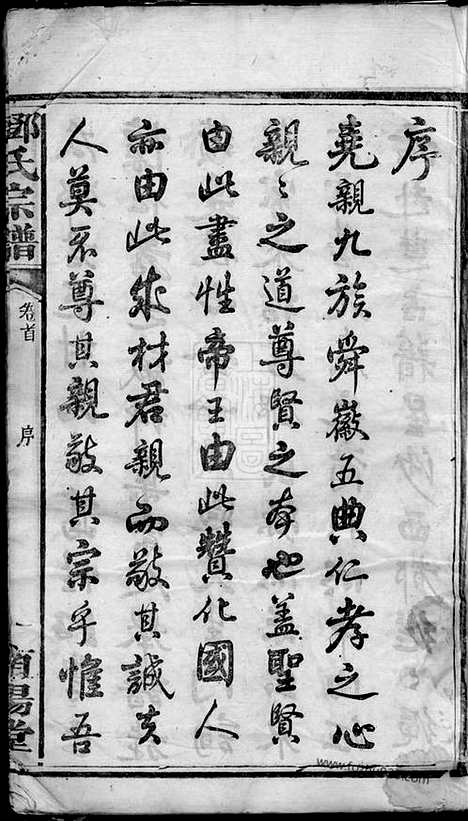 序
堯親九族舜徽五典仁孝之心
親〻之道尊賢之本也蓋聖賢
由此盡性帝王由此贊化國人
亦由此成材君親而敬其誠矣
人莫不尊其親敬其宗乎惟吾
鄧氏宗譜
卷首
序
一
南陽堂